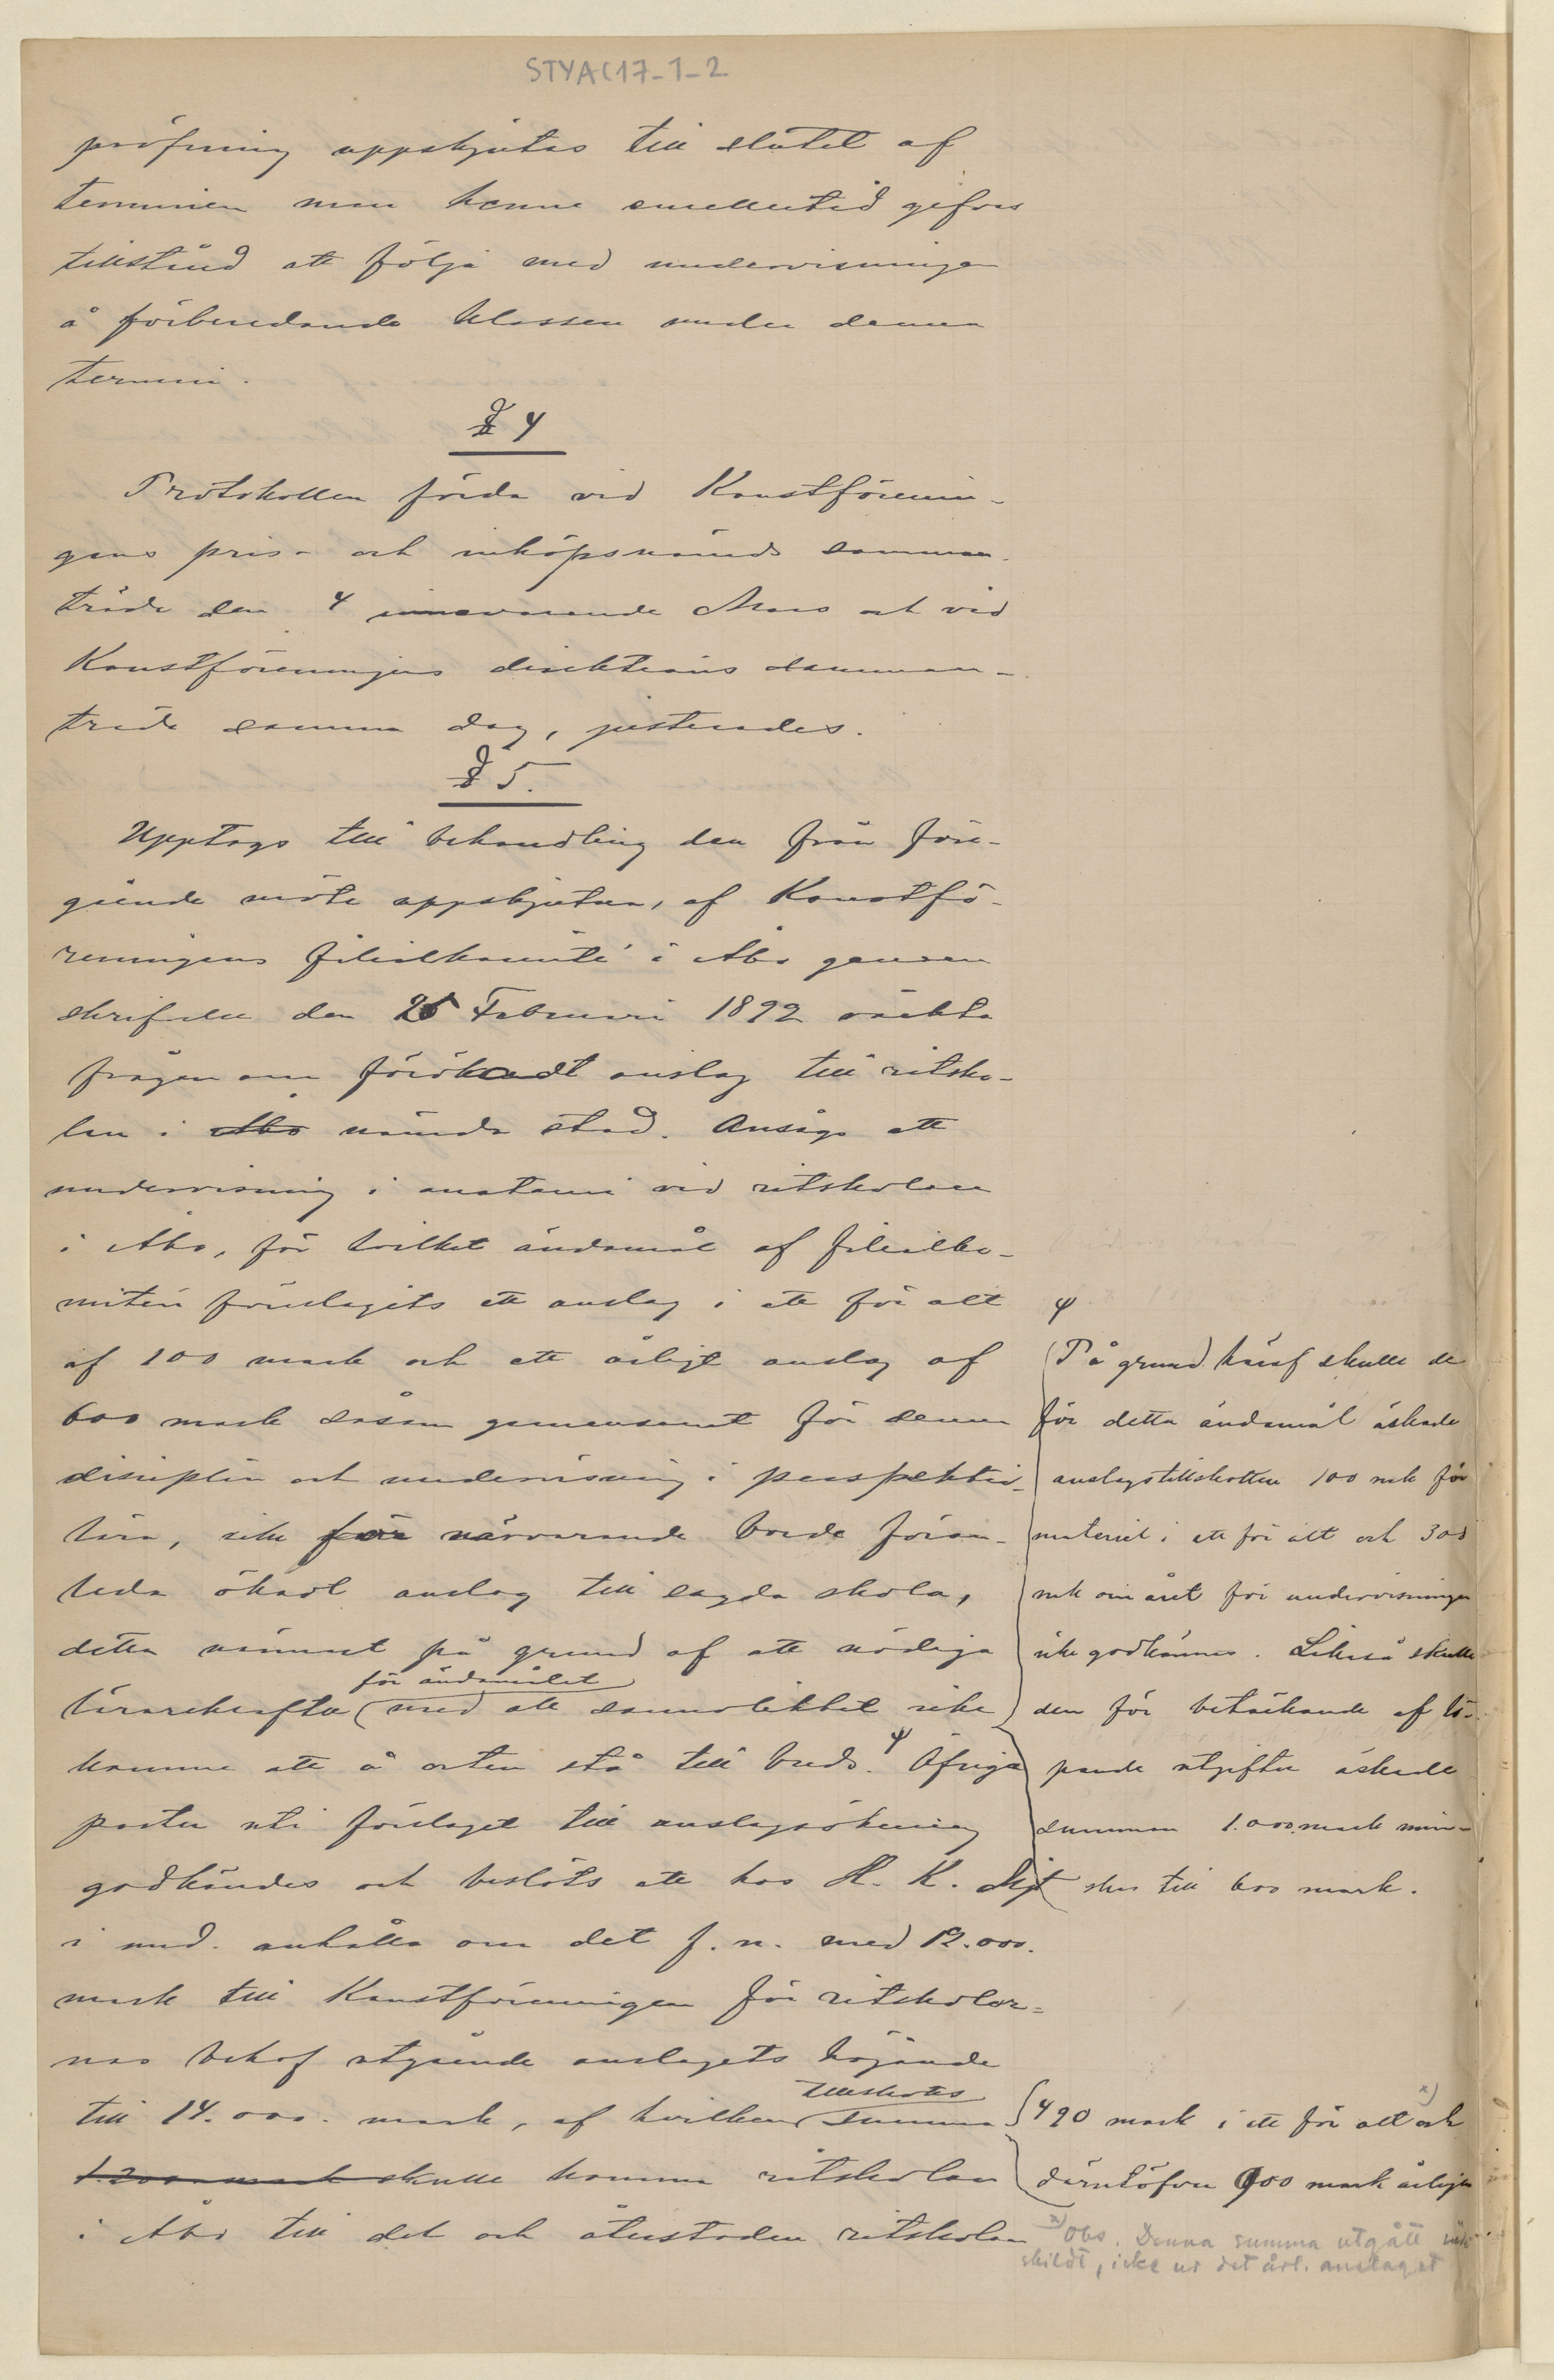 STYA(17-1-2
pröfning uppskjutas till slutet af
terminen men henne emellertid gifves
tillstånd att följa med undervisningen
å förberedande klassen under denna
termin.
§ 4
Protokollen förda vid Konstförenin-
gens pris- och inköpsnämnds samman-
träde den 4 innevarande Mars och vid
Konstföreningens direktions samman-
träde samma dag, justerades.
§ 5.
Upptogs till behandling den från före-
gående möte uppskjutna, af Konstfö-
reningens filialkomité i Åbo genom
skrifvelse den 25 Februari 1892 väckta
frågan om förökadt anslag till ritsko-
lan i Åbo nämnda stad. Ansågs att
undervisning i anatomi vid ritskolan
i Åbo, för hvilket ändamål af filialko-
mitén föreslagits ett anslag i ett för allt
af 100 mark och ett årligt anslag af
600 mark såsom gemensamt för denna
disciplin och undervisning i perspektiv-
lära, icke för närvarande borde föran-
leda ökadt anslag till sagda skola,
detta nämnast på grund af att nödiga
för ändamålet
lärarekrafter (med all sannolikhet icke
komme att å orten stå till buds. ψ Öfriga
poster uti förslaget till anslagsökning
godkändes och beslöts att hos H. K. Mjt
i und. anhålla om det f. n. med 12.000.
mark till Konstföreningen för ritskolor-
nas behof utgående anslagets höjande
tillskotts
till 14.000. mark, af hvilken summa
1.200 mark skulle komma ritskolan
i Åbo till del och återstoden ritskolan
ψ
(På grund häraf skulle de
för detta ändamål äskade
anslagstillskotten 100 mk för
materiel i ett för allt och 300
mk om året för undervisningen
icke godkännas. Likaså skulle
den för betäckande af lö-
pande utgifter äskade
summan 1.000 mark min-
skas till 600 mark.
490 mark i ett för allt x) och
därutöfver 900 mark årligen
x) Obs. Denna summa utgått
skildt, icke ur det årl. anslaget